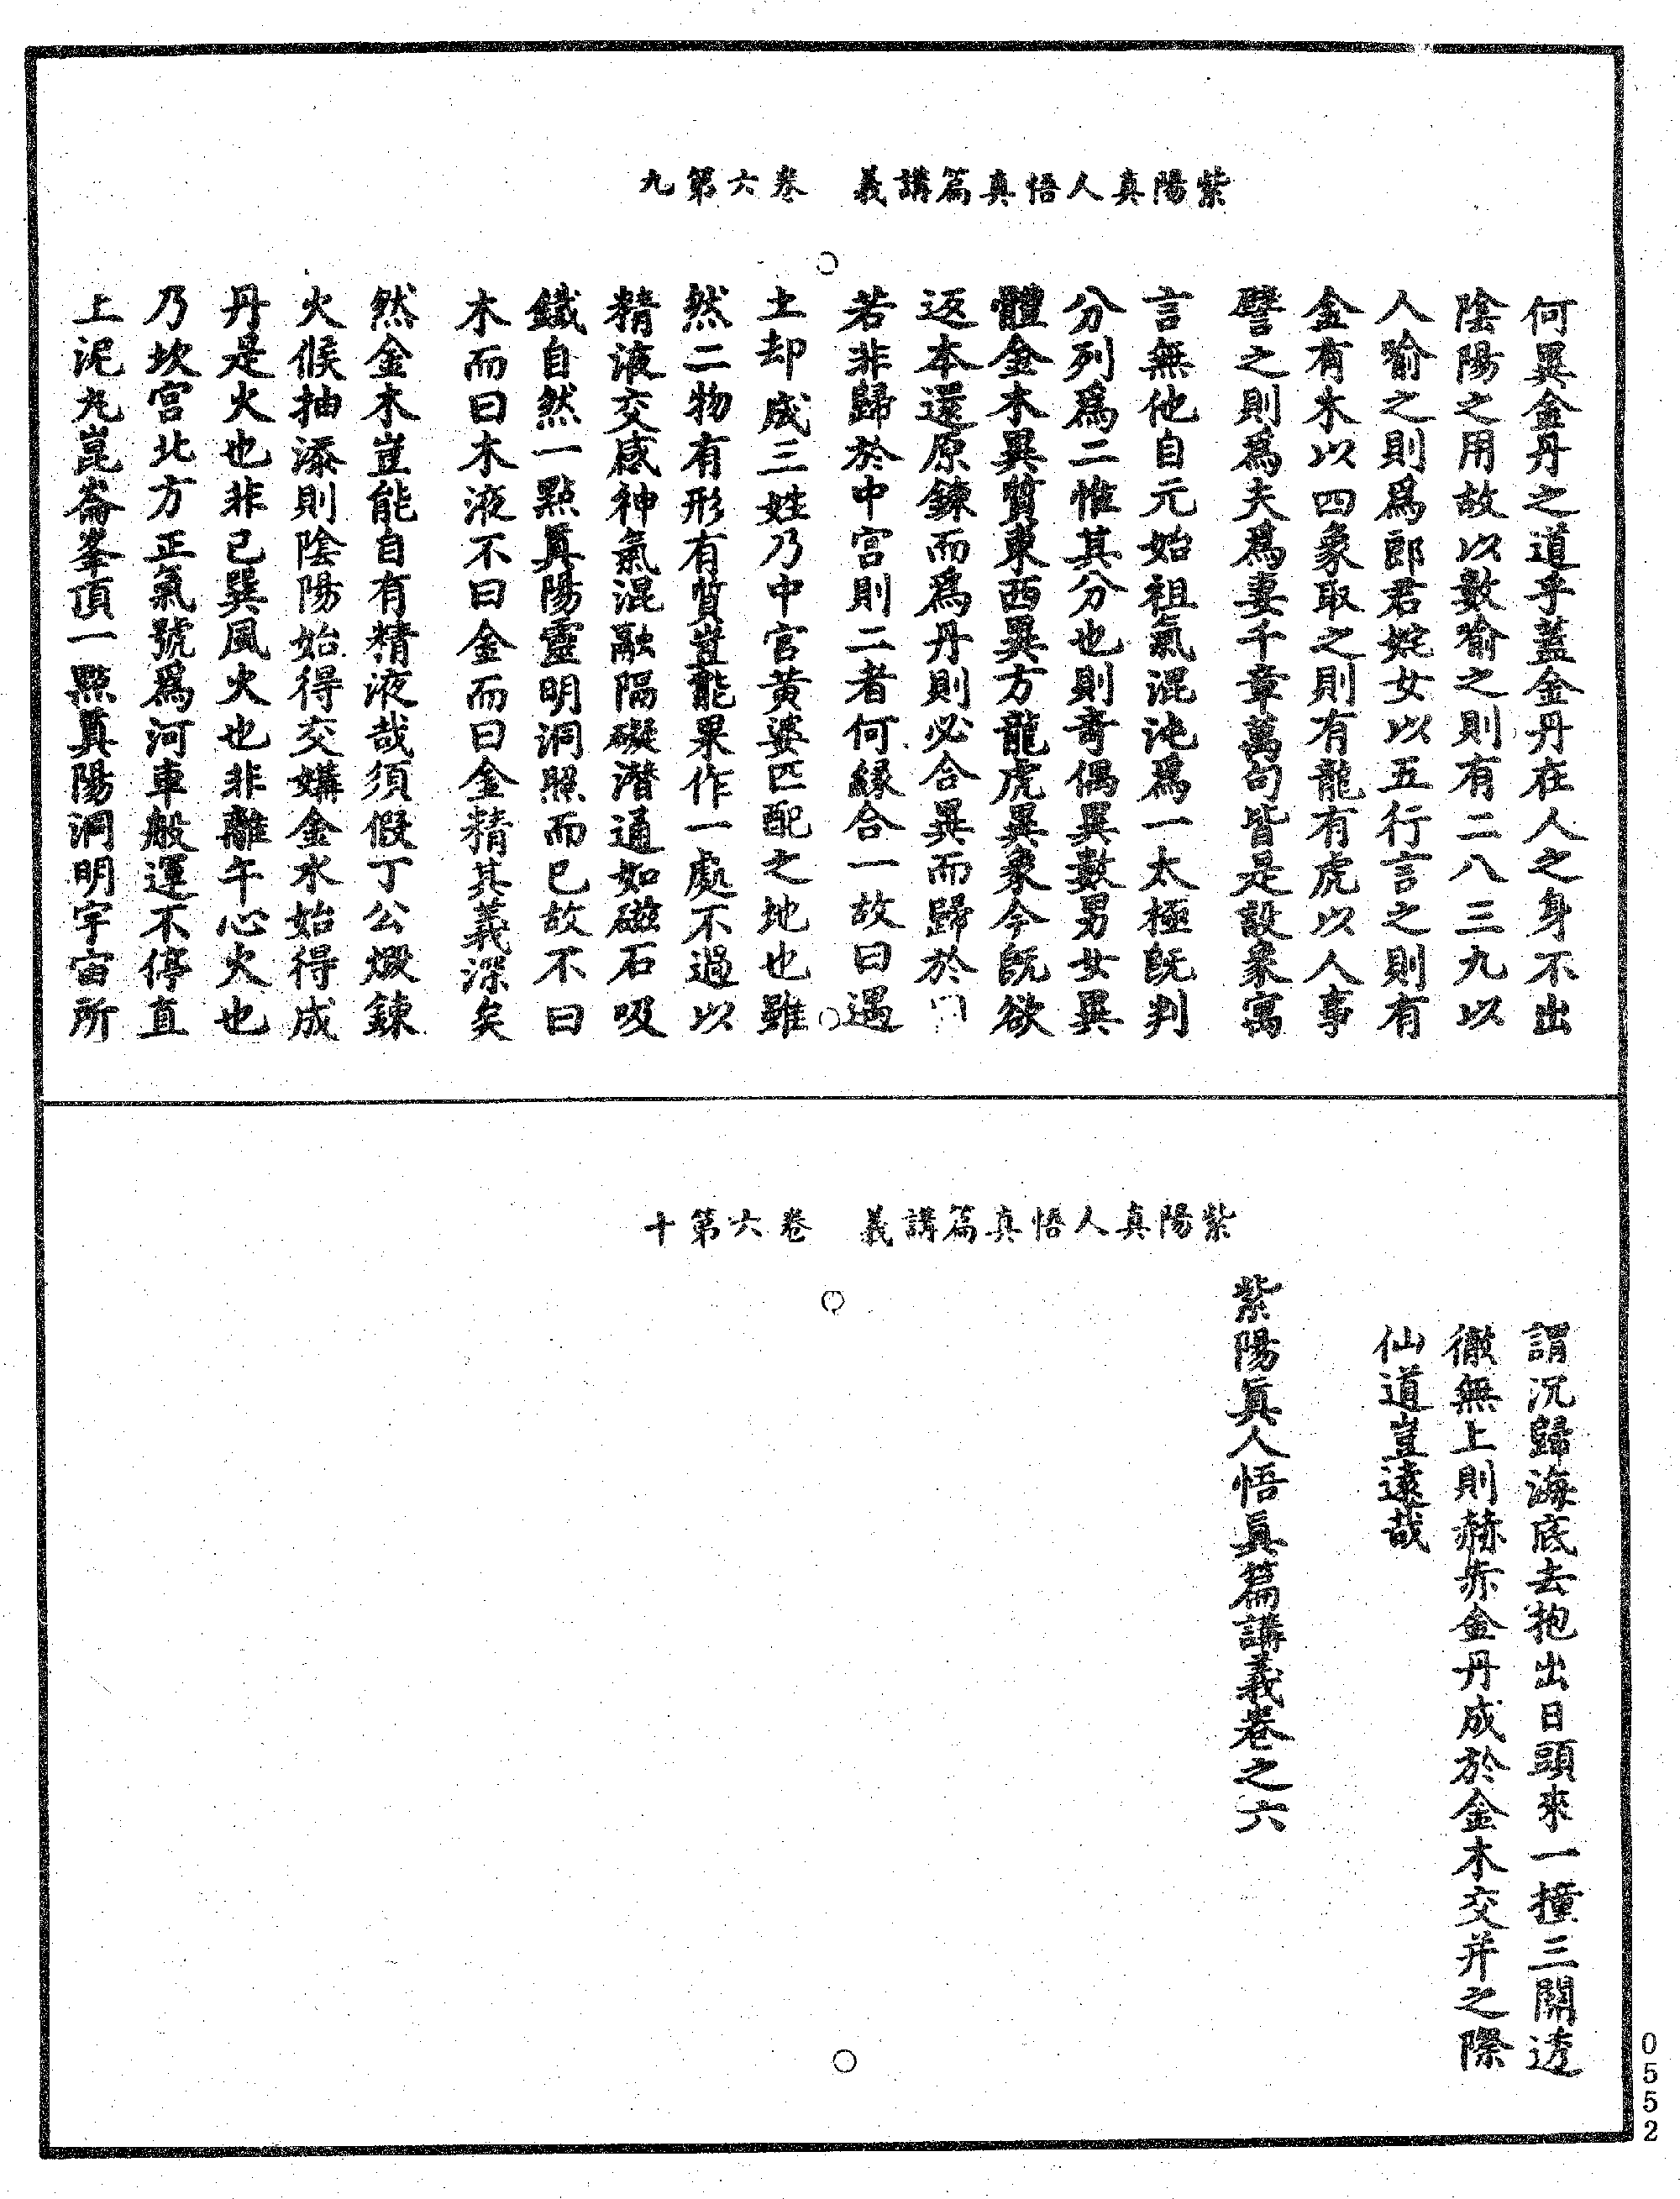 紫陽真人悟真篇講義　卷六第九
何異金丹之道乎蓋金丹在人之身不出
陰陽之用故以數喻之則有二八三九以
人喻之則爲郎君姹女以五行言之則有
金有木以四象取之則有龍有虎以人事
譬之則爲夫爲妻千章萬句皆是設象寓
言無他自元始祖氣混沌爲一太極旣判
分列爲二惟其分也則奇偶異數男女異
體金木異質東西異方龍虎異象今旣欲
返本還原鍊而爲丹則必合異而歸於
若非歸於中宮則二者何緣合一故曰遇
土却成三姓乃中宮黃婆匹配之地也雖
然二物有形有質豈能果作一處不過以
精液交感神氣混融隔礙潛通如磁石吸
鐵自然一點眞陽靈明洞照而已故不曰
木而曰木液不曰金而曰金精其義深矣
然金木豈能自有精液哉須假丁公煅鍊
火候抽添則陰陽始得交媾金水始得成
丹是火也非已巽風火也非離午心火也
乃坎宮北方正氣號爲河車般運不停直
上泥丸崑崙峯頂一點眞陽洞明宇宙所
紫陽真人悟真篇講義　卷六第十
謂沉歸海底去抱出日頭來一撞三關透
徹無上則赫赤金丹成於金木交并之際
仙道豈遠哉
紫陽眞人悟眞篇講義卷之六
0552